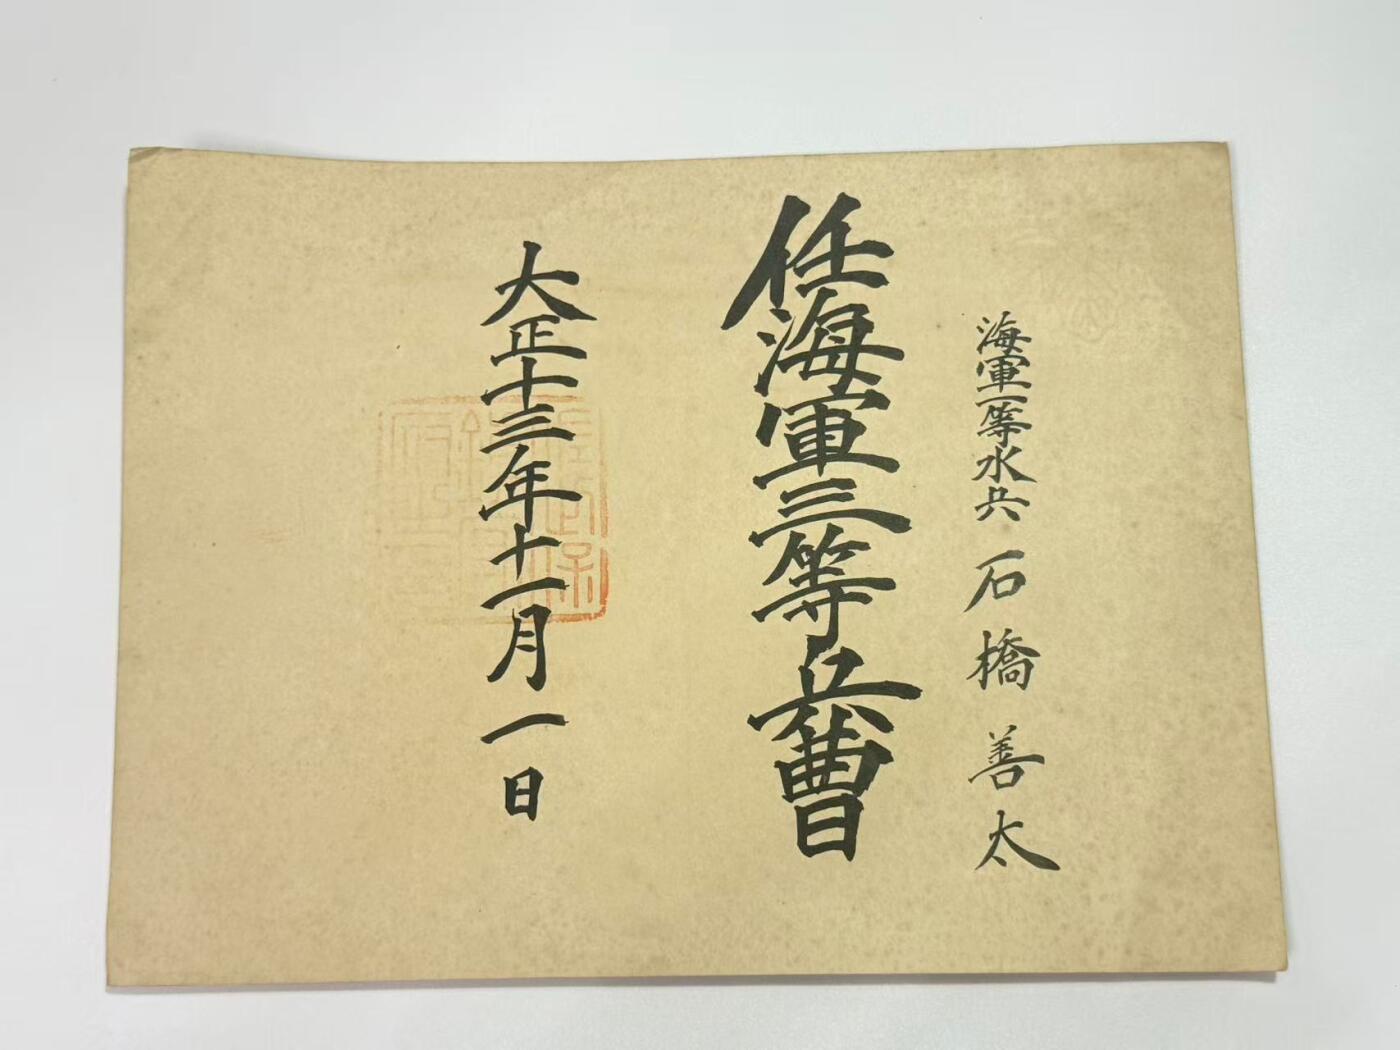 海軍一等水兵 石橋善太
任海軍三等兵曹
大正十三年十一月一日